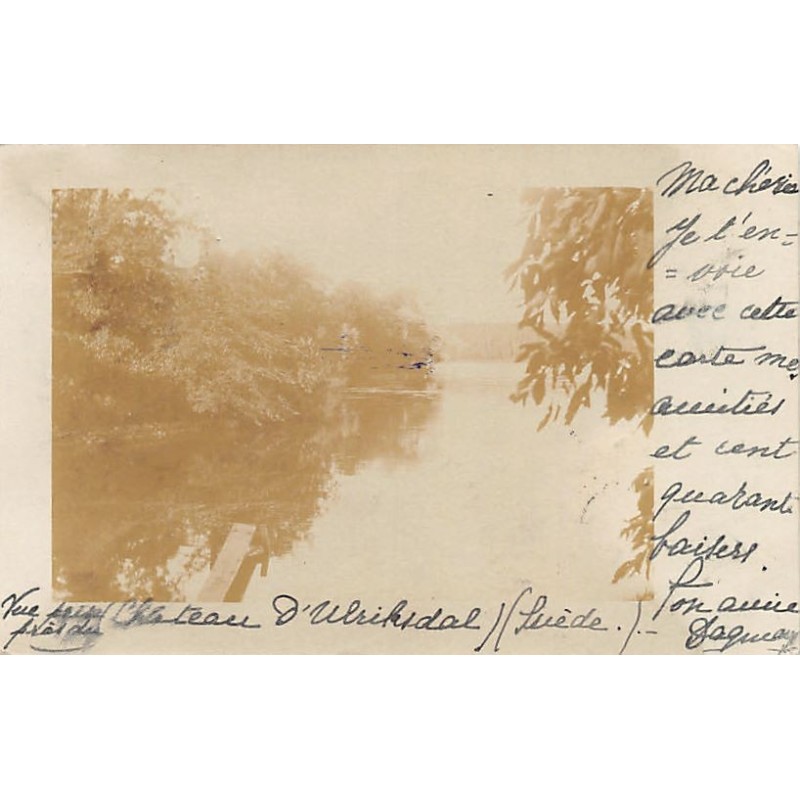 Ma chérie
Je t'en-
= voie
avec cette
carte mes
amitiés
et cent
quarante
baisers.
Ton amie
Dagmar
Vue prise (Château D'Ulriksdal) (Suède.).-
près du